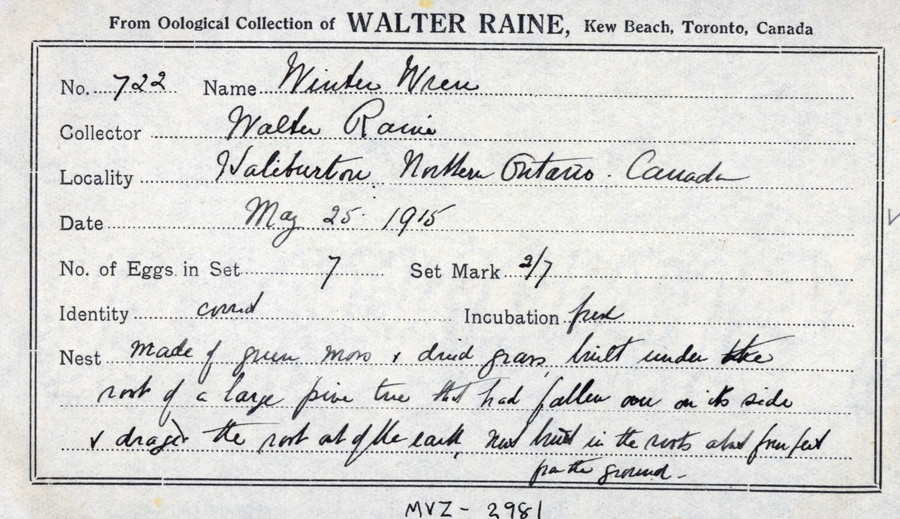 From Oological Collection of WALTER RAINE, Kew Beach, Toronto, Canada
No. 722 Name Winter Wren
Collector Walter Raine
Locality Haliburton, Northern Ontario. Canada
Date May 25 1915
No. of Eggs in Set 7 Set Mark 2/7
Identity correct Incubation fresh
Nest made of green moss & dried grass, built under the
root of a large pine tree that had fallen over on its side
& draged the root out of the earth, Nest built in the roots about four feet
from the ground -
MVZ - 2981